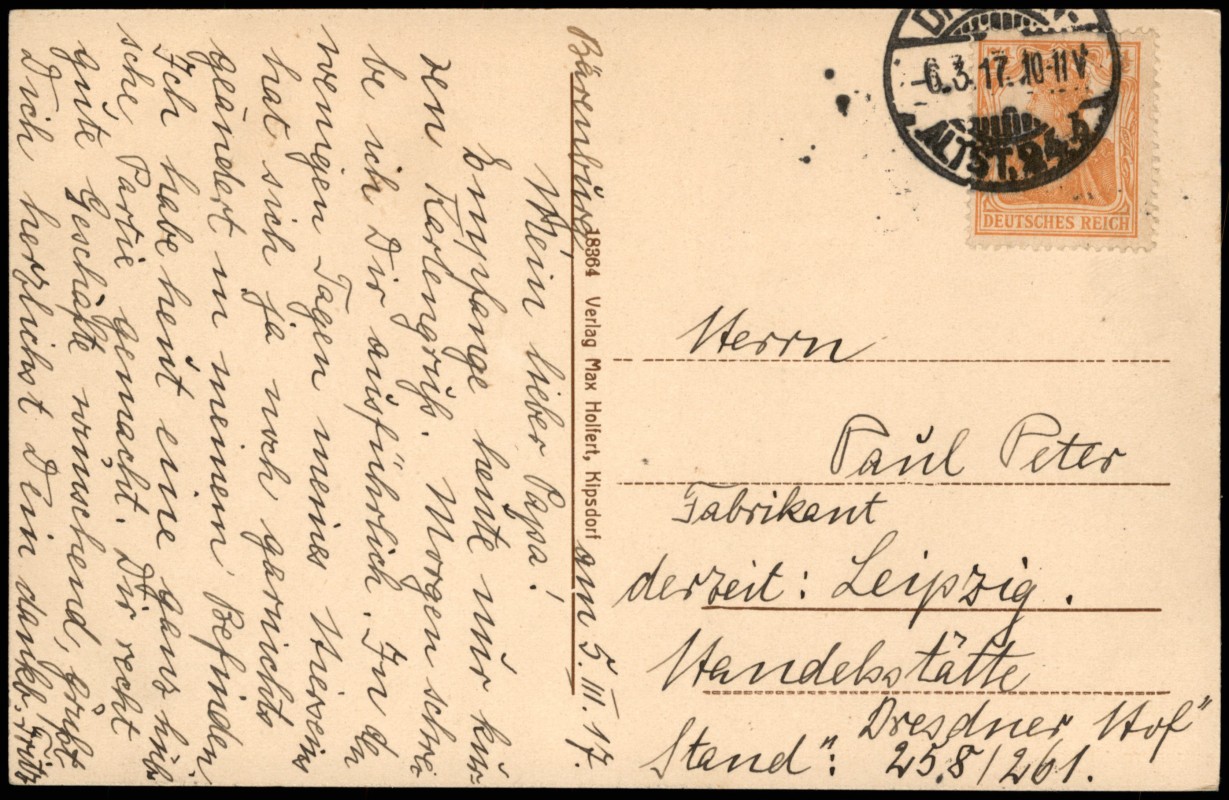 Bärenburg am 5. III. 17.
Mein lieber Papa!
Empfange heute nur kur-
zen Kartengruß. Morgen schrei
be ich Dir ausführlich. In den
wenigen Tagen meines Hierseins
hat sich ja noch garnichts
geändert in meinem Befinden
Ich habe heut eine ganz hüb-
sche Partie gemacht. Dir recht
gute Geschäfte wünschend, grüßt
Dich herzlichst Dein dankb. Fritz
18364 Verlag Max Holfert, Kipsdorf
-6.3.17.10-11V
ALTST. 24
DEUTSCHES REICH
Herrn
Paul Peter
Fabrikant
derzeit: Leipzig.
Handelsstätte
Dresdner Hof"
Stand": 25.8/261.